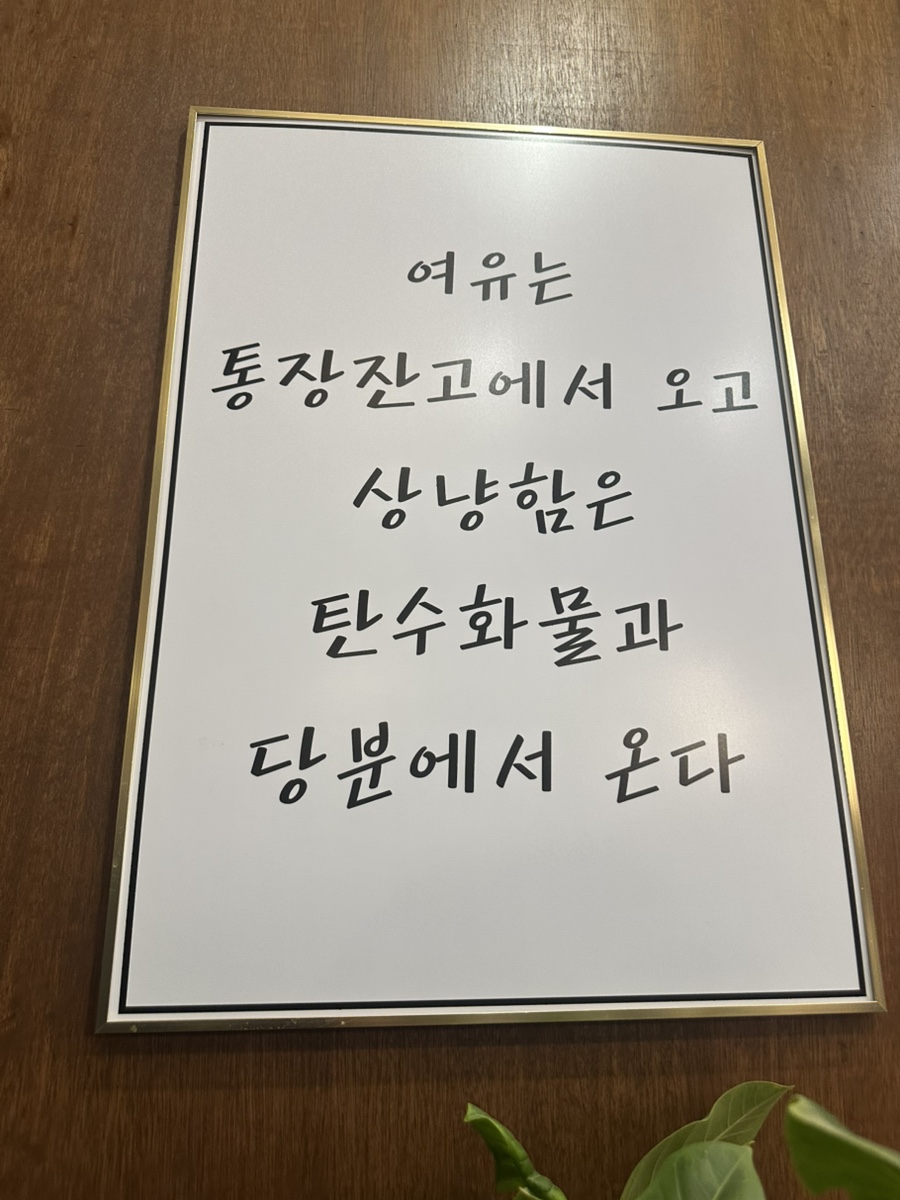 여유는
통장잔고에서 오고
상냥함은
탄수화물과
당분에서 온다